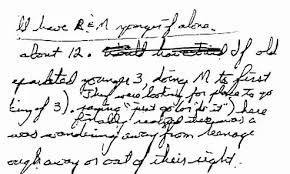 have R & M younger if alone.
about 12. If old
younger 3, doing M to first
They were looking for place to go
ting of 3). saying "just go (or do it") here
finally realized there was a
was wandering away from teenage
away or out of their sight.